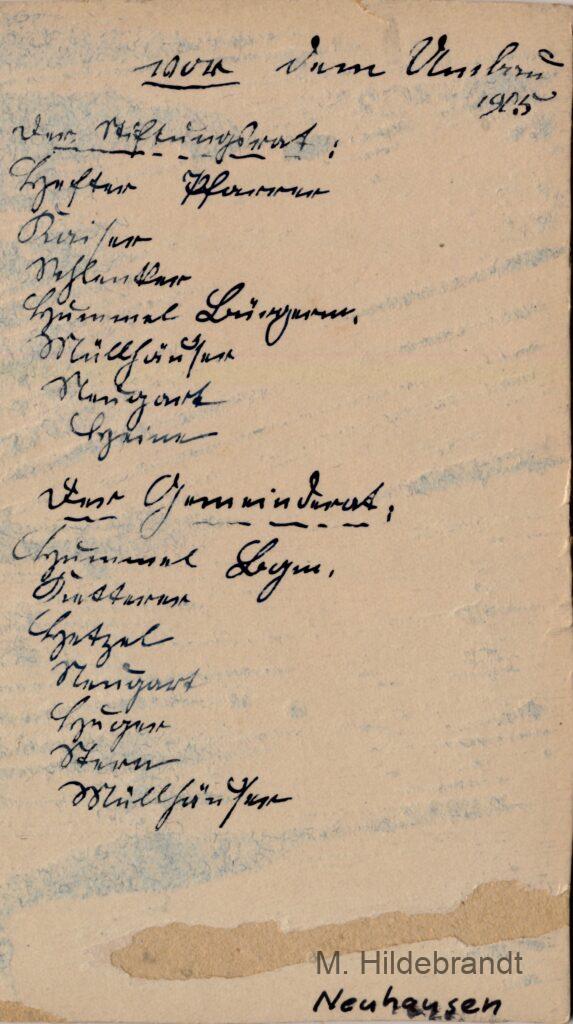 vor dem Umbau
1905
Der Stiftungsrat:
Hefter Pfarrer
Kaiser
Schlenker
Hummel Bürgerm.
Müllhäuser
Neugart
Heine
Der Gemeinderat:
Hummel Bgm.
Ketterer
Hetzel
Neugart
Huger
Stern
Müllhäuser
M. Hildebrandt
Neuhausen